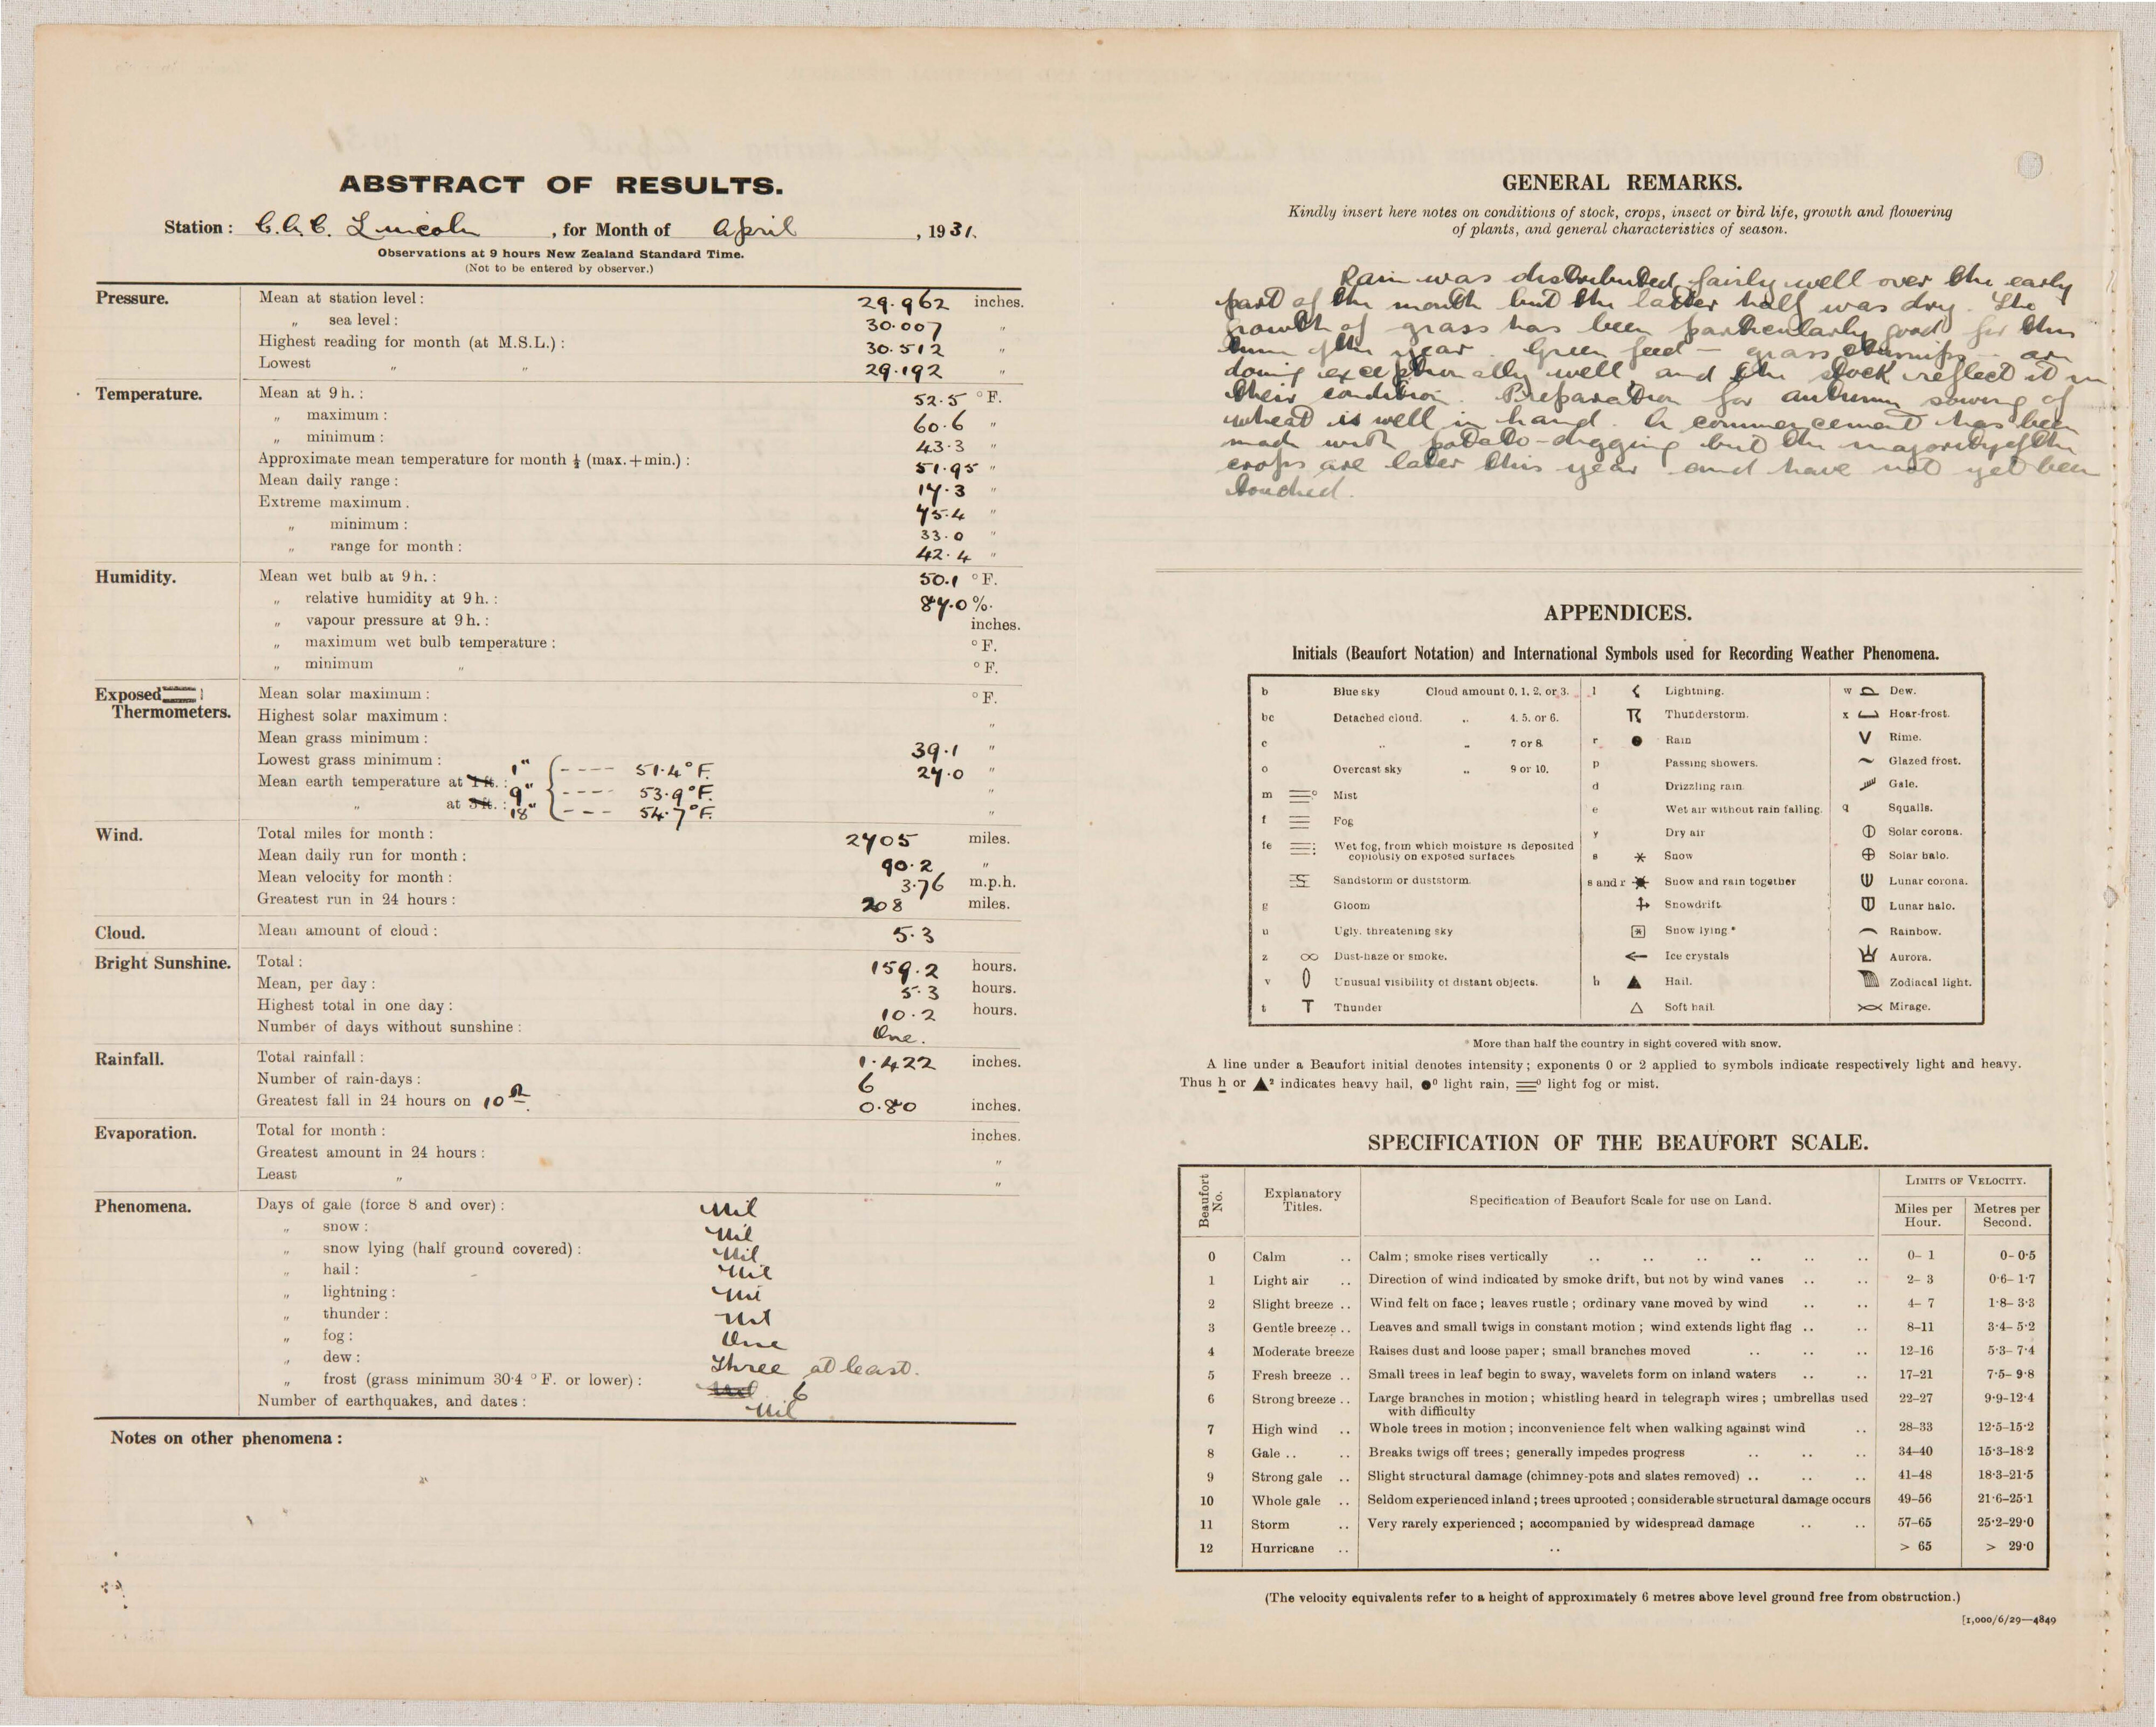 ABSTRACT OF RESULTS.
Station: C.A.C. Lincoln, for Month of April, 1931.
Observations at 9 hours New Zealand Standard Time.
(Not to be entered by observer.)
Pressure. Mean at station level: 29.962 inches.
„ sea level: 30.007 „
Highest reading for month (at M.S.L.): 30.512 „
Lowest „ „ 29.192 „
Temperature. Mean at 9 h.: 52.5 °F.
„ maximum: 60.6 „
„ minimum: 43.3 „
Approximate mean temperature for month ½ (max.+min.): 51.95 „
Mean daily range: 17.3 „
Extreme maximum. 75.4 „
„ minimum: 33.0 „
„ range for month: 42.4 „
Humidity. Mean wet bulb at 9 h.: 50.1 °F.
„ relative humidity at 9 h.: 87.0 %.
„ vapour pressure at 9 h.: inches.
„ maximum wet bulb temperature: °F.
„ minimum „ °F.
Exposed Thermometers. Mean solar maximum: °F.
Highest solar maximum: „
Mean grass minimum: 39.1 „
Lowest grass minimum: 27.0 „
Mean earth temperature at 1 ft.: 1" ---- 51.4°F.
9" ---- 53.9°F. „
„ at 3 ft.: 18" --- 54.7°F. „
Wind. Total miles for month: 2705 miles.
Mean daily run for month: 90.2 „
Mean velocity for month: 3.76 m.p.h.
Greatest run in 24 hours: 208 miles.
Cloud. Mean amount of cloud: 5.3
Bright Sunshine. Total: 159.2 hours.
Mean, per day: 5.3 hours.
Highest total in one day: 10.2 hours.
Number of days without sunshine: One.
Rainfall. Total rainfall: 1.422 inches.
Number of rain-days: 6
Greatest fall in 24 hours on 10th 0.80 inches.
Evaporation. Total for month: inches.
Greatest amount in 24 hours: „
Least „ „
Phenomena. Days of gale (force 8 and over): Nil
„ snow: Nil
„ snow lying (half ground covered): Nil
„ hail: Nil
„ lightning: Nil
„ thunder: Nil
„ fog: One
„ dew: Three at least.
„ frost (grass minimum 30·4 °F. or lower): Nil 6
Number of earthquakes, and dates: Nil
Notes on other phenomena:
GENERAL REMARKS.
Kindly insert here notes on conditions of stock, crops, insect or bird life, growth and flowering
of plants, and general characteristics of season.
Rain was distributed fairly well over the early
part of the month but the latter half was dry. The
growth of grass has been particularly good for this
time of the year. Green feed – grass & turnips – are
doing exceptionally well, and the stock reflect it in
their condition. Preparation for autumn sowing of
wheat is well in hand. A commencement has been
made with potato-digging but the majority of the
crops are later this year and have not yet been
touched.
APPENDICES.
Initials (Beaufort Notation) and International Symbols used for Recording Weather Phenomena.
b Blue sky Cloud amount 0, 1, 2, or 3. l Lightning. w Dew.
bc Detached cloud. „ 4, 5, or 6. Thunderstorm. x Hoar-frost.
c „ „ 7 or 8. r Rain Rime.
o Overcast sky „ 9 or 10. p Passing showers. Glazed frost.
m Mist d Drizzling rain. Gale.
f Fog e Wet air without rain falling. q Squalls.
fe Wet fog, from which moisture is deposited copiously on exposed surfaces y Dry air Solar corona.
s Snow Solar halo.
Sandstorm or duststorm. s and r Snow and rain together Lunar corona.
g Gloom Snowdrift. Lunar halo.
u Ugly, threatening sky Snow lying* Rainbow.
z ∞ Dust-haze or smoke. Ice crystals Aurora.
v Unusual visibility of distant objects. h Hail. Zodiacal light.
t T Thunder Soft hail. Mirage.
* More than half the country in sight covered with snow.
A line under a Beaufort initial denotes intensity; exponents 0 or 2 applied to symbols indicate respectively light and heavy.
Thus h or ▲² indicates heavy hail, ●⁰ light rain, ≡⁰ light fog or mist.
SPECIFICATION OF THE BEAUFORT SCALE.
Beaufort No. Explanatory Titles. Specification of Beaufort Scale for use on Land. LIMITS OF VELOCITY.
Miles per Hour. Metres per Second.
0 Calm .. Calm; smoke rises vertically .. 0– 1 0– 0·5
1 Light air .. Direction of wind indicated by smoke drift, but not by wind vanes .. 2– 3 0·6– 1·7
2 Slight breeze .. Wind felt on face; leaves rustle; ordinary vane moved by wind .. 4– 7 1·8– 3·3
3 Gentle breeze .. Leaves and small twigs in constant motion; wind extends light flag .. 8–11 3·4– 5·2
4 Moderate breeze Raises dust and loose paper; small branches moved .. 12–16 5·3– 7·4
5 Fresh breeze .. Small trees in leaf begin to sway, wavelets form on inland waters .. 17–21 7·5– 9·8
6 Strong breeze .. Large branches in motion; whistling heard in telegraph wires; umbrellas used with difficulty 22–27 9·9–12·4
7 High wind .. Whole trees in motion; inconvenience felt when walking against wind .. 28–33 12·5–15·2
8 Gale .. .. Breaks twigs off trees; generally impedes progress .. 34–40 15·3–18·2
9 Strong gale .. Slight structural damage (chimney-pots and slates removed) .. 41–48 18·3–21·5
10 Whole gale .. Seldom experienced inland; trees uprooted; considerable structural damage occurs 49–56 21·6–25·1
11 Storm .. Very rarely experienced; accompanied by widespread damage .. 57–65 25·2–29·0
12 Hurricane .. .. > 65 > 29·0
(The velocity equivalents refer to a height of approximately 6 metres above level ground free from obstruction.)
[1,000/6/29—4849